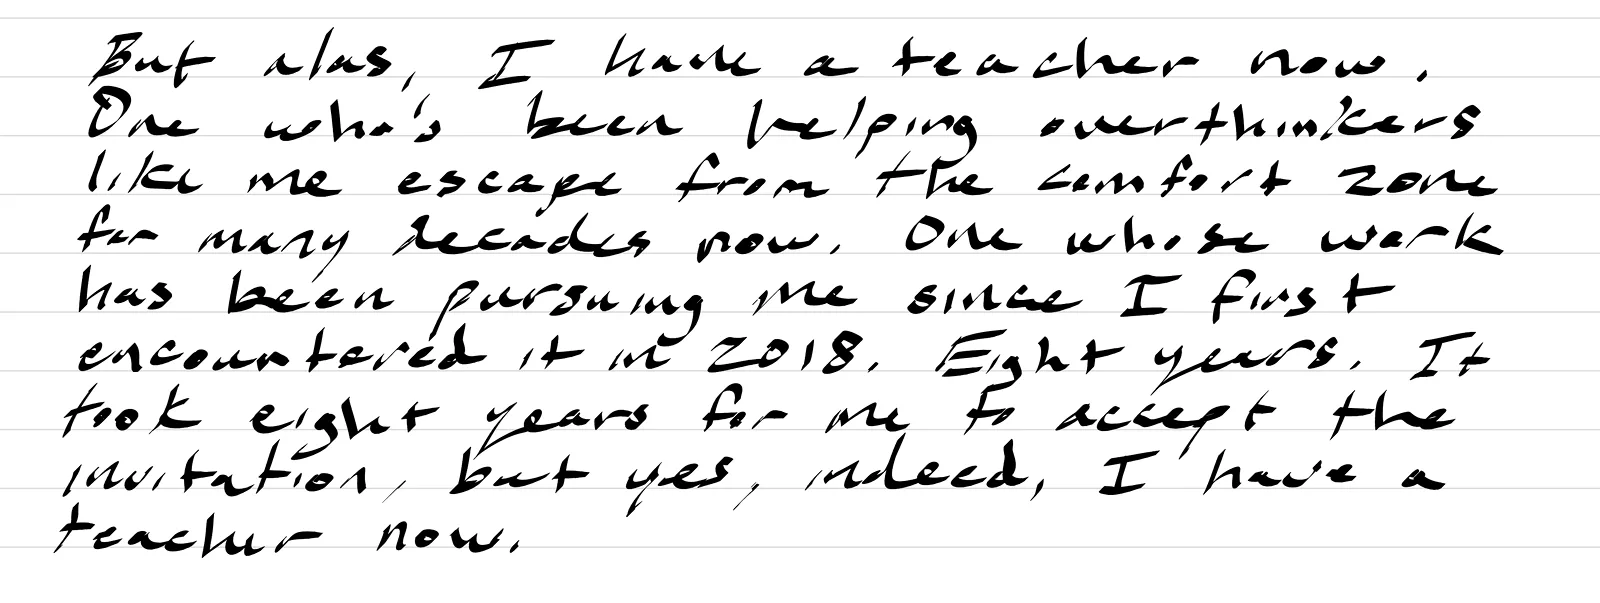 But alas, I have a teacher now.
One who's been helping overthinkers
like me escape from the comfort zone
for many decades now. One whose work
has been pursuing me since I first
encountered it in 2018. Eight years. It
took eight years for me to accept the
invitation, but yes, indeed, I have a
teacher now.